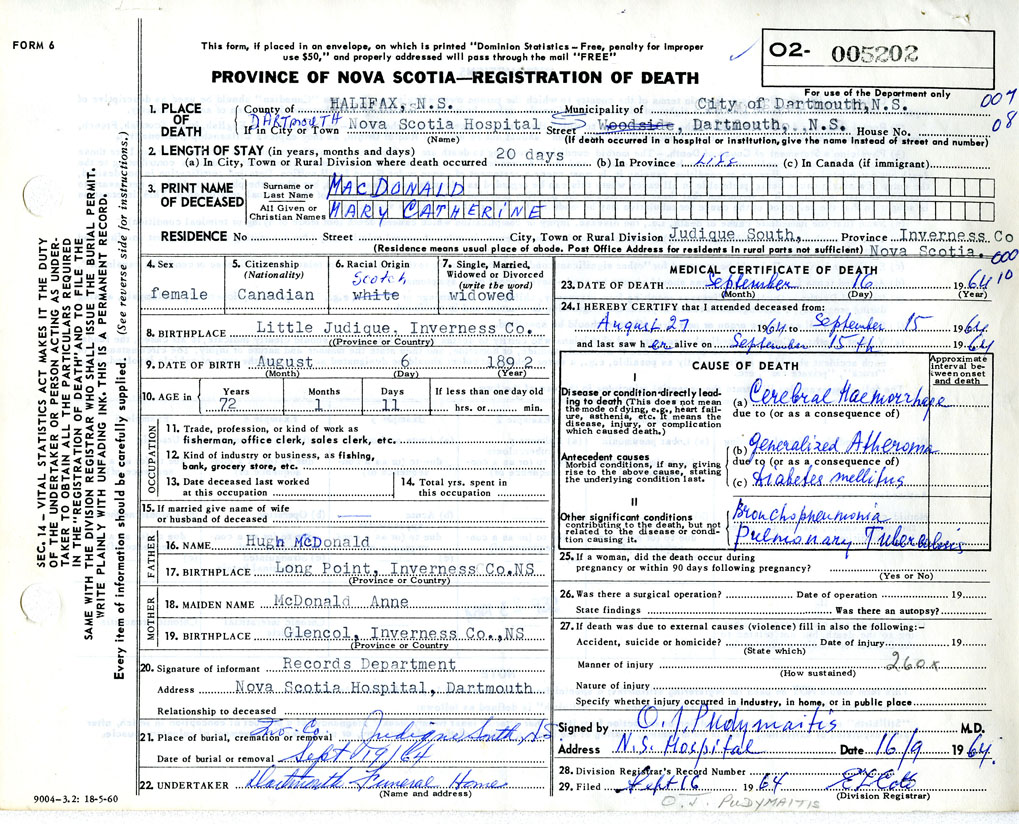 FORM 6
This form, if placed in an envelope, on which is printed "Dominion Statistics – Free, penalty for improper
use $50," and properly addressed will pass through the mail "FREE"
O2- 005202
For use of the Department only
PROVINCE OF NOVA SCOTIA—REGISTRATION OF DEATH
007
08
1. PLACE OF DEATH County of HALIFAX, N.S. Municipality of City of Dartmouth, N.S.
DARTMOUTH
If in City or Town Nova Scotia Hospital Street Woodside, Dartmouth, N.S. House No.
(Name) (If death occurred in a hospital or institution, give the name instead of street and number)
2. LENGTH OF STAY (in years, months and days)
(a) In City, Town or Rural Division where death occurred 20 days (b) In Province Life (c) In Canada (if immigrant)
3. PRINT NAME OF DECEASED
Surname or Last Name MACDONALD
All Given or Christian Names MARY CATHERINE
RESIDENCE No Street City, Town or Rural Division Judique South, Province Inverness Co
(Residence means usual place of abode. Post Office Address for residents in rural parts not sufficient) Nova Scotia.
000
10
4. Sex female
5. Citizenship (Nationality) Canadian
6. Racial Origin Scotch white
7. Single, Married, Widowed or Divorced (write the word) widowed
8. BIRTHPLACE Little Judique, Inverness Co.
(Province or Country)
9. DATE OF BIRTH August 6 1892
(Month) (Day) (Year)
10. AGE in Years 72 Months 1 Days 11 If less than one day old hrs. or min.
OCCUPATION
11. Trade, profession, or kind of work as
fisherman, office clerk, sales clerk, etc.
12. Kind of industry or business, as fishing,
bank, grocery store, etc.
13. Date deceased last worked
at this occupation
14. Total yrs. spent in
this occupation
15. If married give name of wife
or husband of deceased —
FATHER
16. NAME Hugh McDonald
17. BIRTHPLACE Long Point, Inverness Co.NS
(Province or Country)
MOTHER
18. MAIDEN NAME McDonald Anne
19. BIRTHPLACE Glencol, Inverness Co.,NS
(Province or Country
20. Signature of informant Records Department
Address Nova Scotia Hospital, Dartmouth
Relationship to deceased
21. Place of burial, cremation or removal Inv. Co. Judique South, NS
Date of burial or removal Sept 19/64
22. UNDERTAKER Dartmouth Funeral Home
(Name and address)
MEDICAL CERTIFICATE OF DEATH
23. DATE OF DEATH September 16 1964
(Month) (Day) (Year)
24. I HEREBY CERTIFY that I attended deceased from:
August 27 1964 to September 15 1964
and last saw her alive on September 15th 1964
CAUSE OF DEATH
Approximate
Interval be-
tween onset
and death
I
Disease or condition directly lead-
ing to death (This does not mean
the mode of dying, e.g., heart fail-
ure, asthenia, etc. It means the
disease, injury, or complication
which caused death.)
(a) Cerebral Haemorrhage
due to (or as a consequence of)
Antecedent causes
Morbid conditions, if any, giving
rise to the above cause, stating
the underlying condition last.
(b) Generalized Atheroma
due to (or as a consequence of)
(c) Diabetes mellitus
II
Other significant conditions
contributing to the death, but not
related to the disease or condi-
tion causing it.
Bronchopneumonia
Pulmonary Tuberculosis
25. If a woman, did the death occur during
pregnancy or within 90 days following pregnancy?
(Yes or No)
26. Was there a surgical operation? Date of operation 19
State findings Was there an autopsy?
27. If death was due to external causes (violence) fill in also the following:–
Accident, suicide or homicide? Date of injury 19
(State which)
Manner of injury 260x
(How sustained)
Nature of injury
Specify whether injury occurred in industry, in home, or in public place
Signed by O. J. Pudymaitis M.D.
Address N.S. Hospital Date 16/9 1964.
28. Division Registrar's Record Number
29. Filed Sept 16 1964
(Division Registrar)
O. J. PUDYMAITIS
9004-3.2: 18-5-60
SEC. 14 – VITAL STATISTICS ACT MAKES IT THE DUTY
OF THE UNDERTAKER OR PERSON ACTING AS UNDER-
TAKER TO OBTAIN ALL THE PARTICULARS REQUIRED
IN THE "REGISTRATION OF DEATH" AND TO FILE THE
SAME WITH THE DIVISION REGISTRAR WHO SHALL ISSUE THE BURIAL PERMIT.
WRITE PLAINLY WITH UNFADING INK. THIS IS A PERMANENT RECORD.
Every item of information should be carefully supplied. (See reverse side for instructions.)